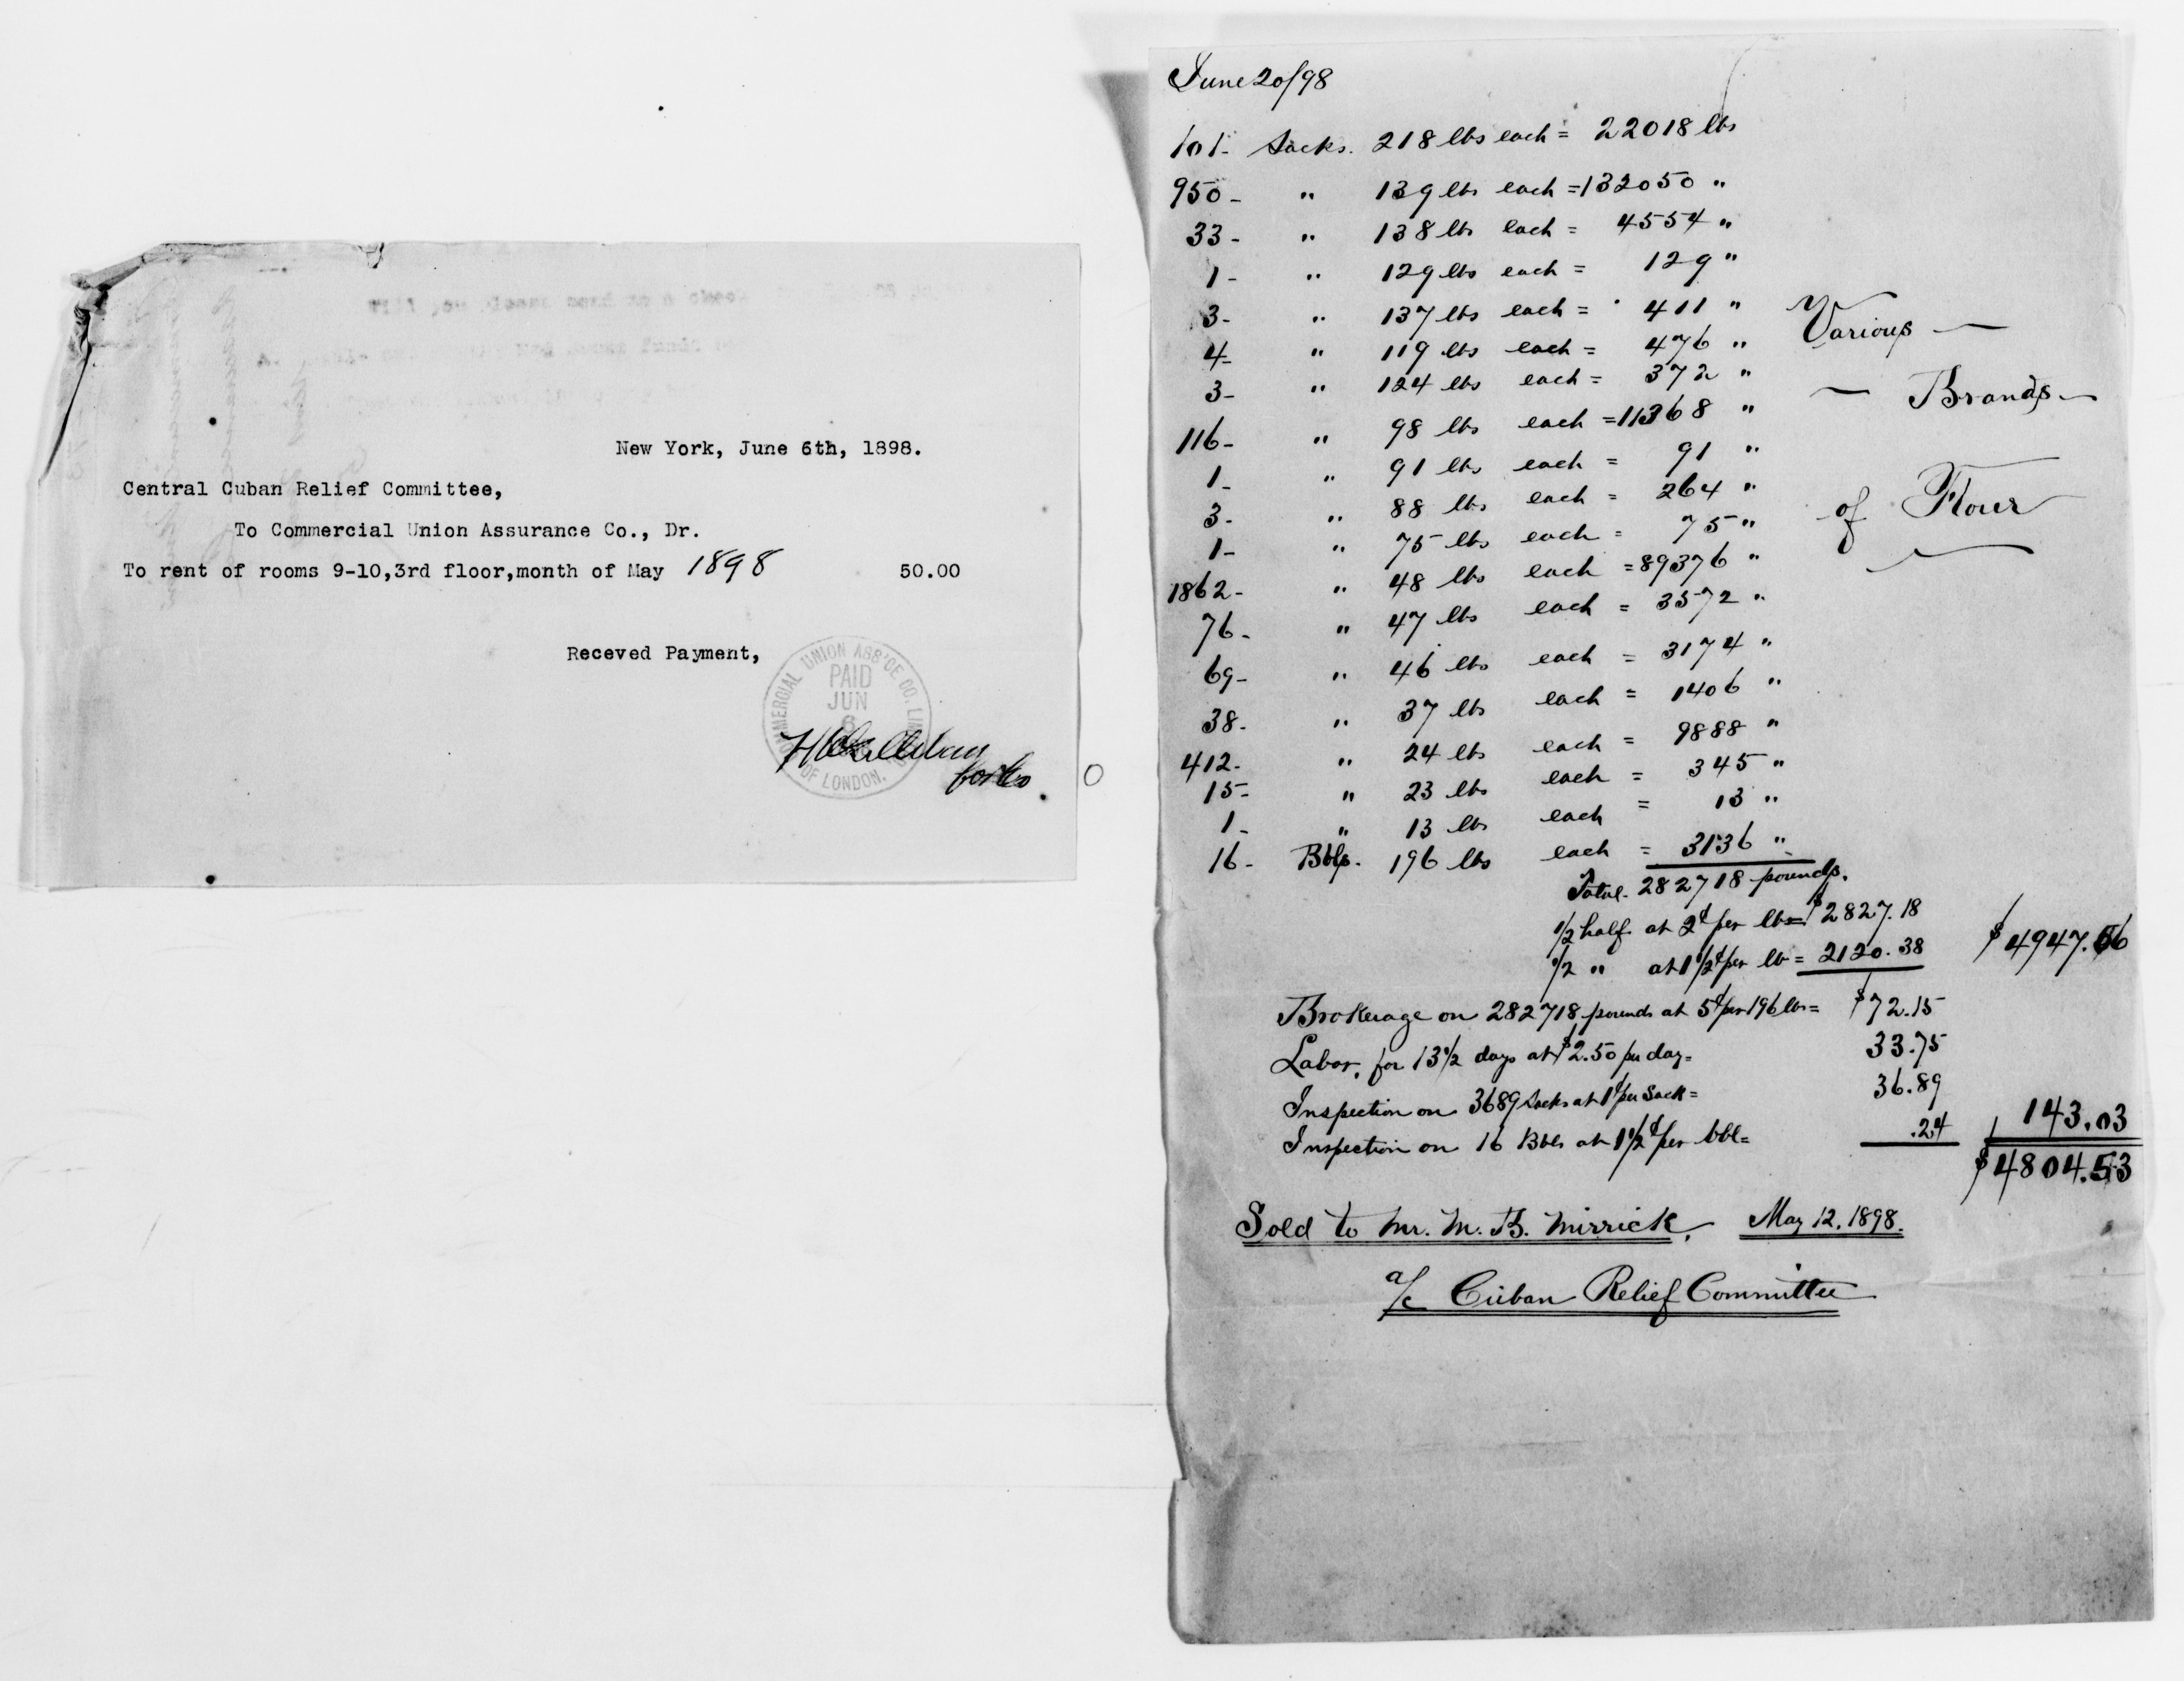 New York, June 6th, 1898.
Central Cuban Relief Committee,
To Commercial Union Assurance Co., Dr.
To rent of rooms 9-10,3rd floor,month of May 1898 50.00
Receved Payment,
COMMERCIAL UNION ASS'CE CO. LIM
PAID
JUN
6
OF LONDON.
June 20/98
101- Sacks. 218 lbs each = 22018 lbs
950- " 139 lbs each = 132050 "
33- " 138 lbs each = 4554 "
1- " 129 lbs each = 129 "
3- " 137 lbs each = 411 "
4- " 119 lbs each = 476 "
3- " 124 lbs each = 372 "
116- " 98 lbs each = 11368 "
1- " 91 lbs each = 91 "
3- " 88 lbs each = 264 "
1- " 75 lbs each = 75 "
1862- " 48 lbs each = 89376 "
76- " 47 lbs each = 3572 "
69- " 46 lbs each = 3174 "
38- " 37 lbs each = 1406 "
412- " 24 lbs each = 9888 "
15- " 23 lbs each = 345 "
1- " 13 lbs each = 13 "
16- Bbls. 196 lbs each = 3136 "
Various
Brands
of Flour
Total- 282718 pounds.
1/2 half at 2¢ per lb = $2827.18
1/2 " at 1 1/2¢ per lb = 2120.38 $4947.56
Brokerage on 282718 pounds at 5¢ per 196 lbs = $72.15
Labor, for 13 1/2 days at $2.50 per day = 33.75
Inspection on 3689 Sacks at 1¢ per Sack = 36.89
Inspection on 16 Bbls at 1 1/2¢ per bbl = .24 143.03
$4804.53
Sold to Mr. M. B. Mirrick. May 12. 1898.
a/c Cuban Relief Committee